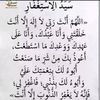 سيد الاستغفار
اللهم أنت ربي لا إله إلا أنت
خلقتني وأنا عبدك وأنا على
عهدك ووعدك ما استطعت
أعوذ بك من شر ما صنعت
أبوء لك بنعمتك علي
وأبوء لك بذنبي فاغفر لي
فإنه لا يغفر الذنوب إلا أنت